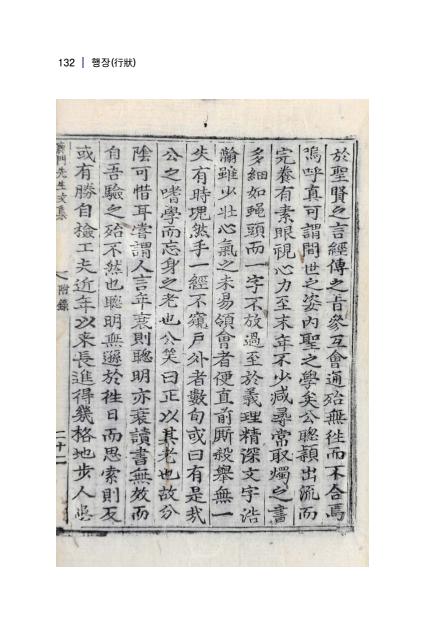 132 | 행장(行狀)
於聖賢之言經傳之旨參互會通殆無徃而不合焉
嗚呼真可謂間世之姿內聖之學矣公聦穎出流而
完養有素眼視心力至末年不少减尋常取燭之書
多細如蝇頭而一字不放過至於義理精深文字浩
瀚雖少壯心氣之未易領會者便直前厮殺舉無一
失有時塊然手一經不窺戶外者數旬或曰有是㢤
公之嗜學而忘身之老也公笑曰正以其老也故分
陰可惜耳嘗謂人言年衰則聦明亦衰讀書無效而
自吾驗之殆不然也聦明無遜於徃日而思索則反
或有勝自檢工夫近年以来長進得幾格地步人
門先生文集
附錄
二十二